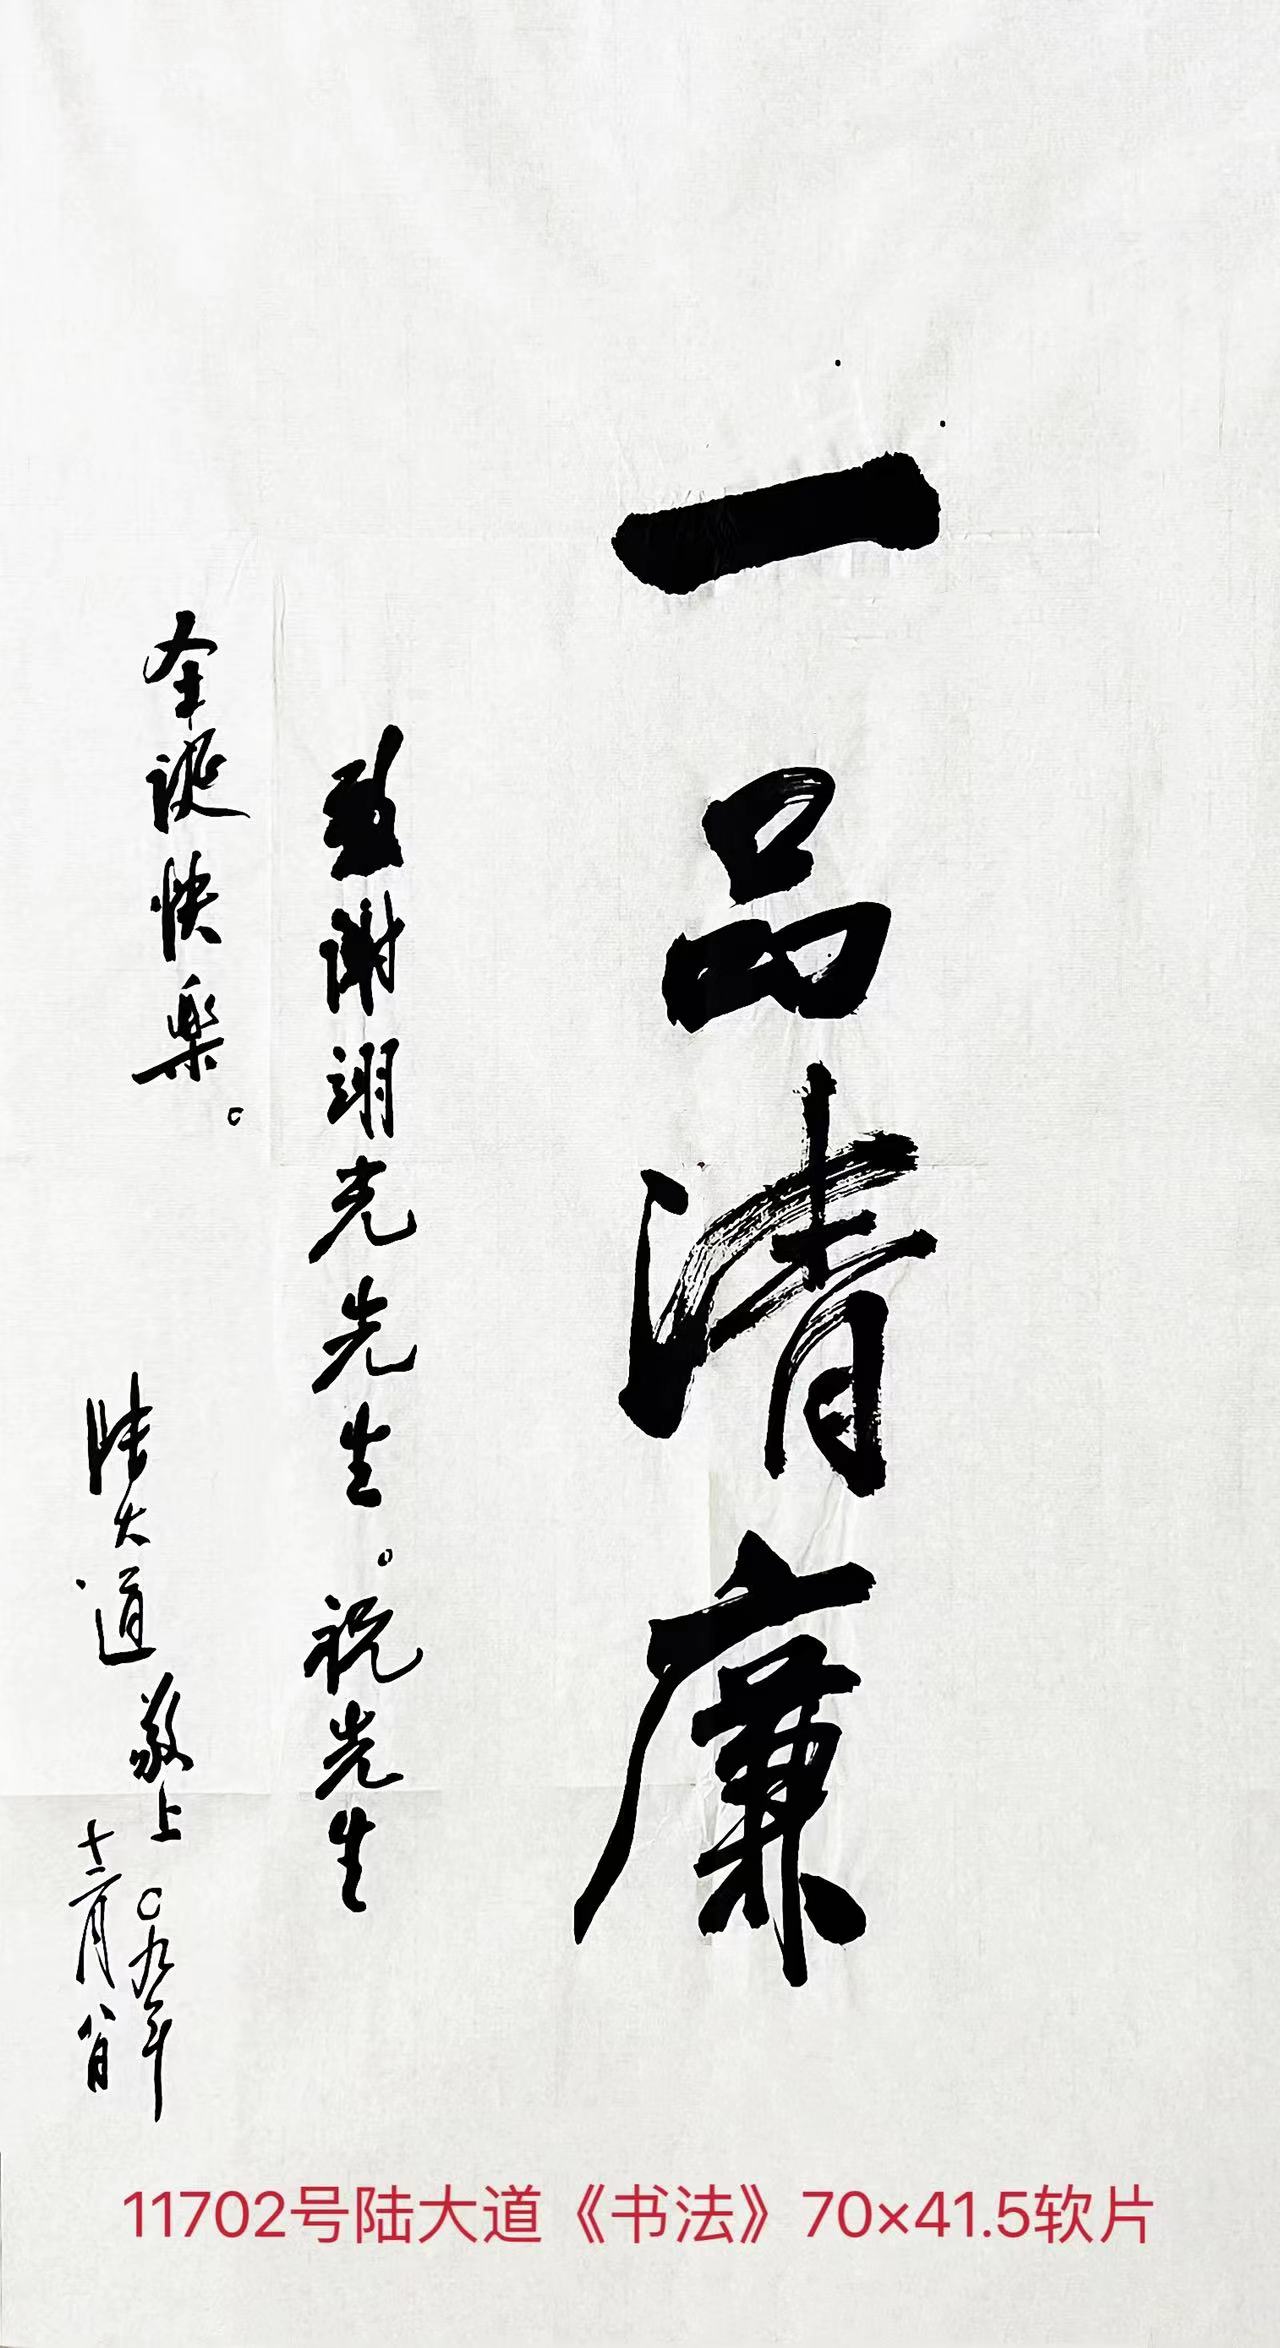 一品清廉
致谢翊光先生。祝先生
全诞快楽。
陆大道敬上
〇九年
十二月八日
11702号陆大道《书法》70×41.5软片